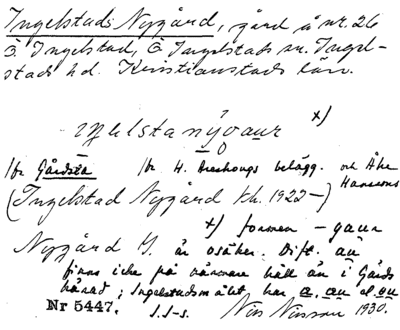 Ingelstads Nygård, gård å nr. 26
Ö Ingelstad, Ö Ingelstads sn. Ingel-
stads hd. Kristianstads län.
x)
/br Gårdsta /br H. Areskougs belägg. och Åke
Hanssons
(Ingelstad Nygård kh. 1922–)
x) formen – gaur
Nygård J. är osäker. Dift. au
finns icke på närmare håll än i Gärds
härad; Ingelstadsmålet har a, au el. ou
Nr 5447. S.S–s. Nils Nilsson 1930.